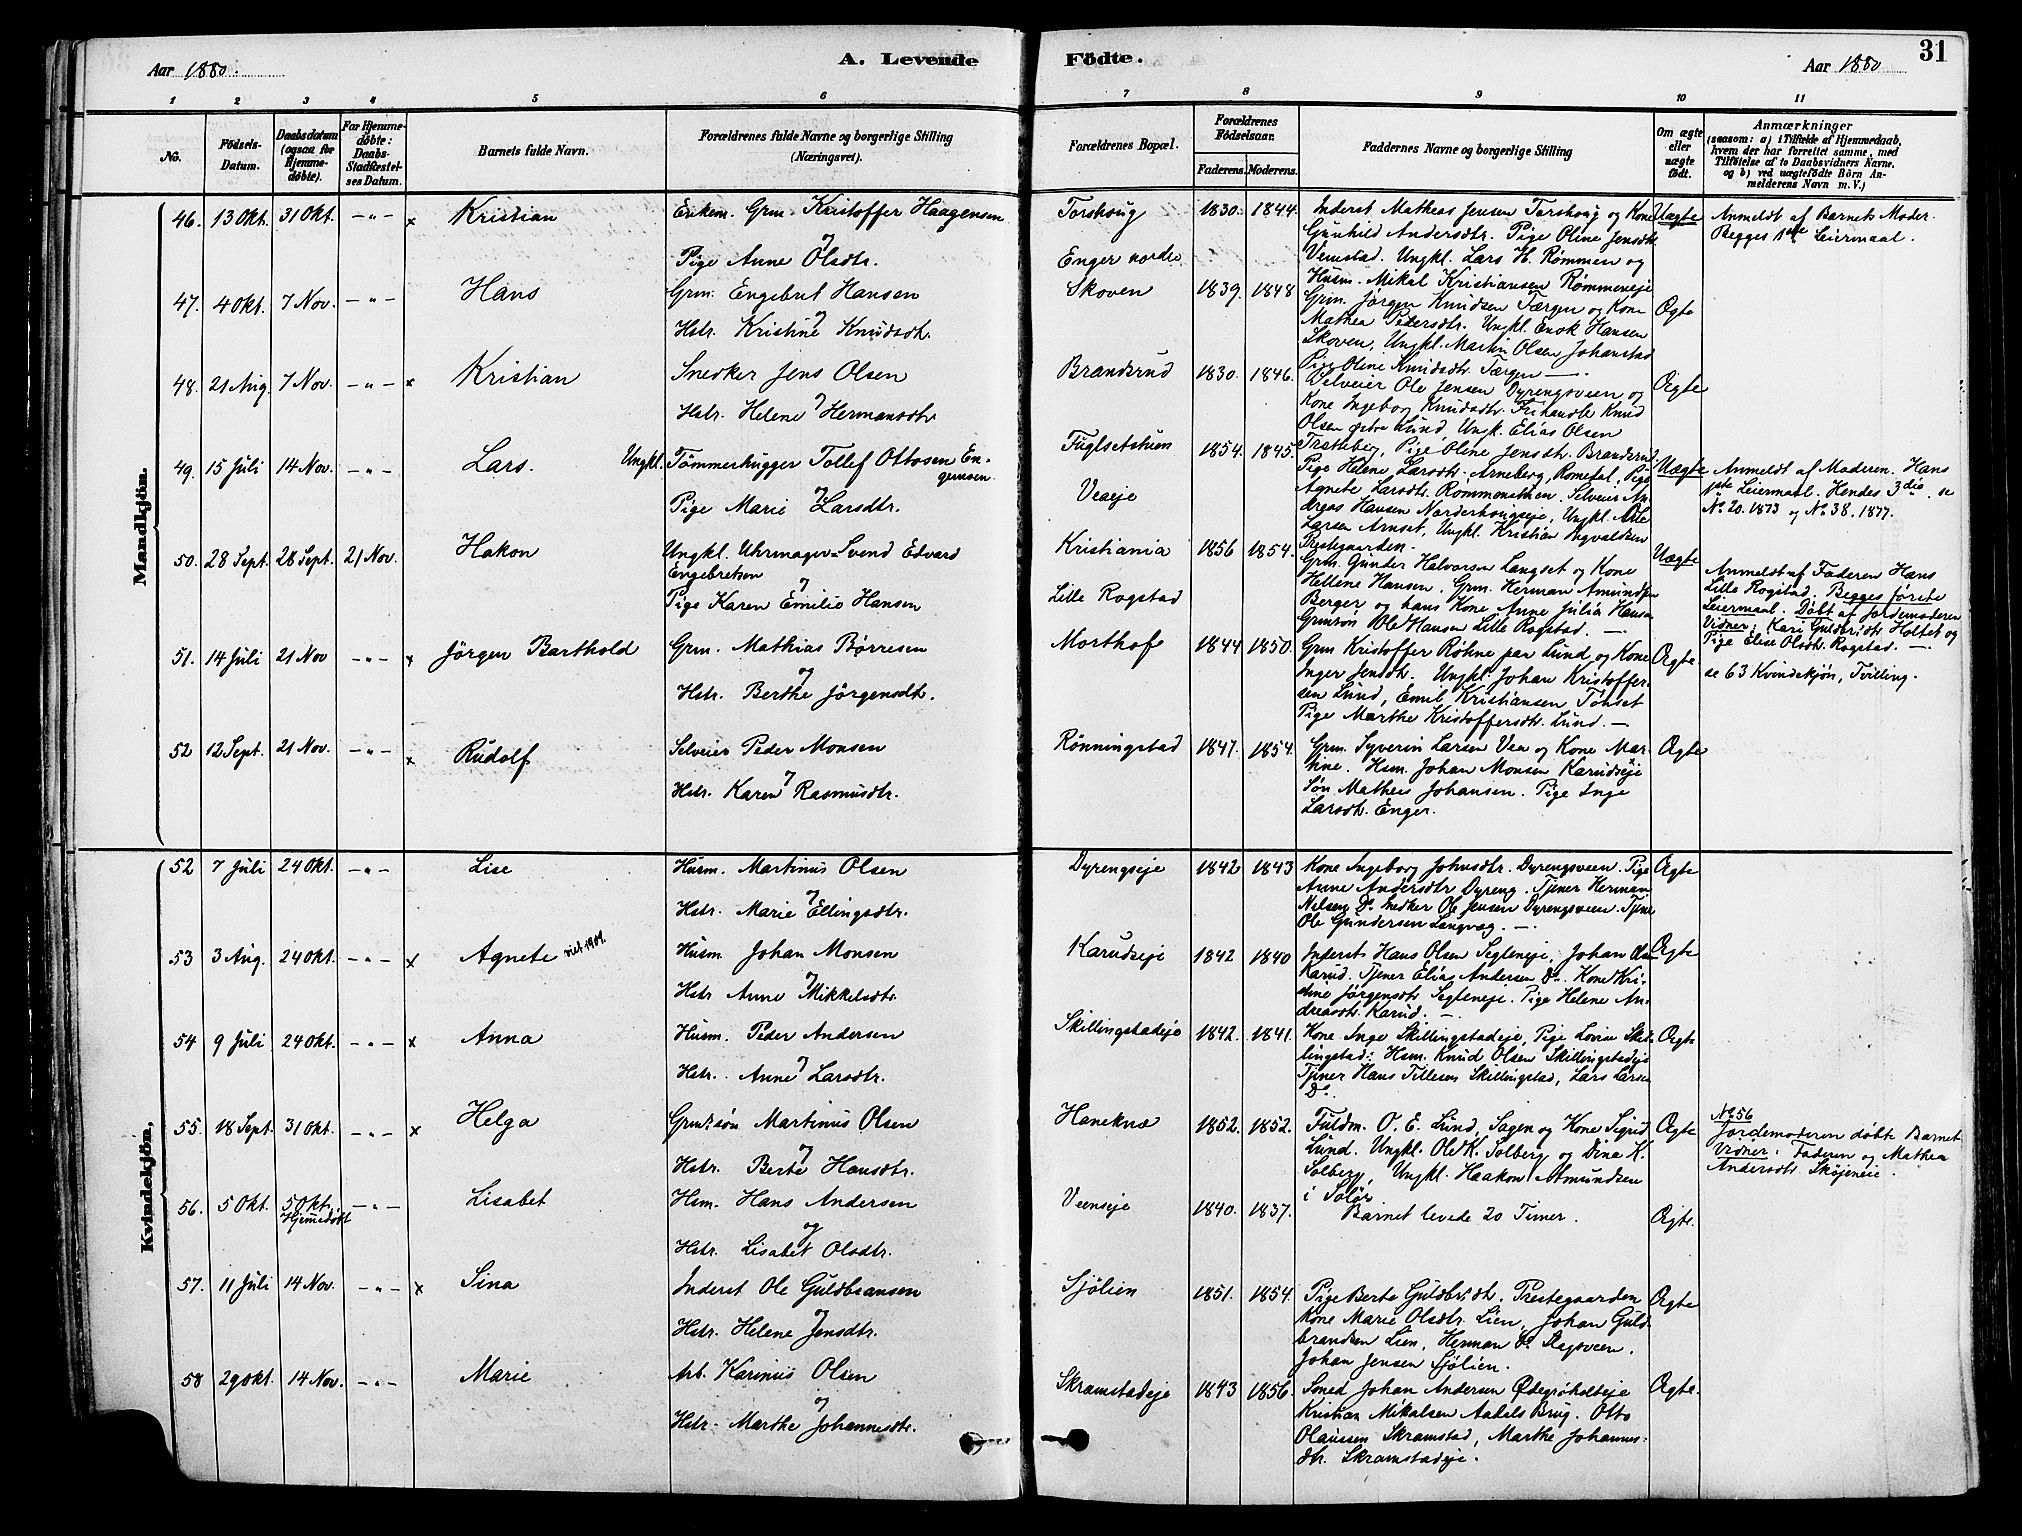 Aar 1880.
A. Levende
Födte.
Aar 1880
31
1 2 3 4 5 6 7 8 9 10 11
No.
Födsels-Datum.
Daabsdatum (ogsaa for Hjemmedöbte).
For Hjemmedöbte: Daabs-Stadfæstelses Datum.
Barnets fulde Navn.
Forældrenes fulde Navne og borgerlige Stilling (Næringsvei).
Forældrenes Bopæl.
Forældrenes Födselsaar.
Faderens. Moderens.
Faddernes Navne og borgerlige Stilling
Om ægte eller uægte födt.
Anmærkninger
(saasom: a) i Tilfælde af Hjemmedaab, hvem der har forrettet samme, med Tilföielse af to Daabsvidners Navne, og b) ved uægtefödte Börn Anmelderens Navn m. V.)
Mandkjön.
46. 13 Okt. 31 Okt. -"- × Kristian
Enkem. Grm. Kristoffer Haagensen
og
Pige Anne Olsdtr.
Torshoug
Enger nordre
1830. 1844.
Inderst Mathias Jensen Torshoug og Kone
Gunhild Andersdtr. Pige Oline Jensdtr.
Vemstad. Ungkl. Lars H. Rømmen og
Husm. Mikal Kristiansen Rømmeneje
Uægte
Anmeldt af Barnets Moder.
Begges 1ste Leiermaal.
47. 4 Okt. 7 Nov. -"- Hans
Grm. Engebret Hansen
og
Hstr. Kristine Knudsdtr.
Skoven
1839. 1848
Grm. Jörgen Knudsen Færgen og Kone
Mathea Pedersdtr. Ungkl. Enok Hansen
Skoven, Ungkl. Martin Olsen Johanstad
Pige Oline Knudsdtr. Færgen
Ægte
48. 21 Aug. 7 Nov. -"- × Kristian
Snedker Jens Olsen
og
Hstr. Helene Hermansdtr.
Brandsrud
1830. 1846.
Selveier Ole Jensen Dyrengsveen og
Kone Ingeborg Knudsdtr. Frihandle Knud
Olsen østre Lund Ungk. Elias Olsen
Tratteberg, Pige Oline Jensdtr. Brandsrud
Ægte
49. 15 Juli 14 Nov. -"- Lars.
Ungkl. Tömmerhugger Tollef Ottosen Engemoen
og
Pige Marie Larsdtr.
Fuglsetstuen
Veaeje
1854. 1845.
Pige Helene Larsdtr. Arneberg, Romedal, Pige
Agnete Larsdtr. Rømmenstuen. Selveier Andreas Hansen Norderhougseje, Ungkl. Atle
Larsen Arnset, Ungkl. Kristian Ingvaldsen
Prestegaarden.
Uægte
Anmeldt af Moderen. Hans
1ste Leiermaal. Hendes 3die, se
No. 20. 1873 og No. 38. 1877.
50. 28 Sept. 28 Sept. 21 Nov. Hakon
Ungkl. Uhrmager Svend Edvard
Engebretsen
og
Pige Karen Emilie Hansen
Kristiania
Lille Rogstad
1856 1854.
Grm. Gunder Halvorsen Langset og Kone
Helene Hansen. Grm. Herman Amundsen
Berger og hans Kone Anne Julia Hansen
Grmsön Ole Hansen Lille Rogstad.
Uægte
Anmeldt af Faderen Hans
Lille Rogstad. Begges første
Leiermaal. Döbt af Jordemoderen
Vidner: Kari Guldbrdtr. Holtet og
Pige Elise Olsdtr. Rogstad.
51. 14 Juli 21 Nov -"- × Jörgen Barthold
Grm. Mathias Børresen
og
Hstr. Berthe Jörgensdtr.
Morthof
1844 1850.
Grm Kristoffer Røhne par Lund og Kone
Inger Jensdtr. Ungkl. Johan Kristoffersen Lund, Emil Kristiansen Tohset
Pige Marthe Kristoffersdtr. Lund.
Ægte.
se 63 Kvindekjön, Tvilling.
52 12 Sept. 21 Nov. -"- × Rudolf
Selveier Peder Monsen
og
Hstr. Karen Rasmusdtr.
Rönningstad
1847. 1854.
Grm. Syverin Larsen Vea og Kone Martine. Hsm. Johan Monsen Karudseje
Søn Mathias Johansen. Pige Inge
Larsdtr. Enger.
Ægte
Kvindekjön,
52 7 Juli 24 Okt. -"- Lise
Husm. Martinus Olsen
og
Hstr. Marie Ellingsdtr.
Dyrengseje
1842 1843
Kone Ingeborg Johnsdtr. Dyrengsveen. Pige
Anne Andersdtr Dyreng. Tjener Herman
Nilsen Do. Snedker Ole Jensen Dyrengsveen. Tjener
Ole Gundersen Langvag.
Ægte
53 3 Aug. 24 Okt. -"- × Agnete viet 1909.
Husm Johan Monsen
og
Hstr Anne Mikkelsdtr.
Karudseje
1842 1840
Inderst Hans Olsen Segleneje, Johan Olsen
Karud. Tjener Elias Andersen Do. Kone Kristine Jörgensdtr Segleneje. Pige Helene Andreasdtr. Karud.
Ægte
54 9 Juli 24 Okt. -"- × Anna
Husm. Peder Andersen
og
Hstr. Anne Larsdtr.
Skillingstadeje
1842. 1841.
Kone Inge Skillingstadeje, Pige Lovise Skillingstad: Hsm. Knud Olsen Skillingstadeje
Tjener Hans Tillesen Skillingstad, Lars Larsen
Do.
Ægte
55. 18 Sept. 31 Okt. -"- × Helga
Grmssön Martinus Olsen
og
Hstr. Berte Hansdtr.
Haneknæ
1852. 1852.
Fuldm. O. E. Lund, Sagen og Kone Sigrid
Lund. Ungkl. Ole K. Solberg og Dina K.
Solberg, Ungkl. Haakon Amundsen
i Solör
Ægte
No. 56
Jordemoderen döbte Barnet
Vidner: Faderen og Mathea
Andersdtr. Skøjeneie.
56. 5 Okt. 5 Okt. Hjemedöbt -"- Lisabet
Hsm. Hans Andersen
og
Hstr. Lisabet Olsdtr.
Veenseje
1840. 1837.
Barnet levede 20 Timer.
Ægte.
57. 11 Juli 14 Nov. -"- × Sina
Inderst Ole Guldbransen
og
Hstr. Helene Jensdtr.
Sjölien
1851. 1854.
Pige Berte Guldbrdtr. Prestegaarden
Kone Marie Olsdtr. Lien, Johan Guldbrandsen Lien, Herman Do. Slagsveen.
Johan Jensen Sjölien.
Ægte
58 29 Okt. 14 Nov. -"- Marie
Arb. Karinus Olsen
og
Hstr. Marthe Johannesdtr.
Skramstadeje
1843 1856.
Smed Johan Andersen Ødegröholteje
Kristian Mikalsen Aadals Brug. Otto
Olaussen Skramstad, Marthe Johannesdtr. Skramstadeje.
Ægte.